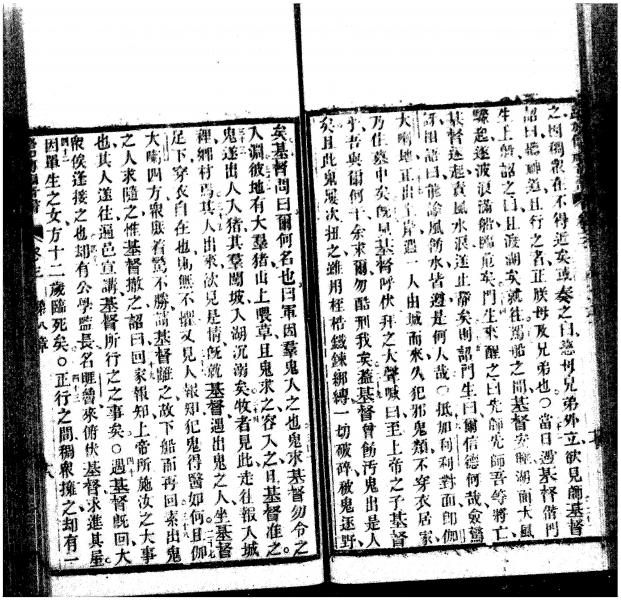 之因稠衆在不得近矣或奏之曰慈母兄弟外立欲見師基督
詔曰聽神道且行之者正朕母及兄弟也當日遇基督偕門
生上船詔之曰且渡湖矣就往駕船之間基督安睡湖面大風
驟起逐波浪滿船臨危矣門生來醒之曰先師先師吾等將亡
基督遂起責風水浪遂止靜矣則詔門生曰爾信德何哉僉驚
訝相語曰能諭風飭水皆遵是何人哉抵加利利對面即伽
大喇地正出上岸遇一人由城而來久犯邪鬼類不穿衣居家
乃住墓中矣旣見基督呼伏拜之大聲喊曰至上帝之子基督
乎吾與爾何干余求爾勿酷刑我矣蓋基督曾飭汚鬼出是人
矣且此鬼屢次扭之雖用桎梏鐵鍊綁縛一切破碎被鬼逐野
矣基督問曰爾何名也曰軍因羣鬼入之也鬼求基督勿令之
入淵彼地有大羣猪山上喂草且鬼求之容入之且基督准之
鬼遂出人入猪其羣闖坡入湖沉溺矣牧者見此走往報入城
裡鄉村焉其人出來欲見是情旣就基督遇出鬼之人坐基督
足下穿衣自在也則無不懼又見人報知犯鬼得醫如何且伽
大喇四方衆民着驚不勝請基督離之故下船而再回索出鬼
之人求隨之惟基督撤之詔曰回家報知上帝所施汝之大事
也其人遂往遍邑宣講基督所行之之事矣遇基督旣回大
衆俟逢接之也却有公學監長名睚魯來俯伏基督求進其屋
因單生之女方十二歲臨死矣正行之間稠衆擁之却有一